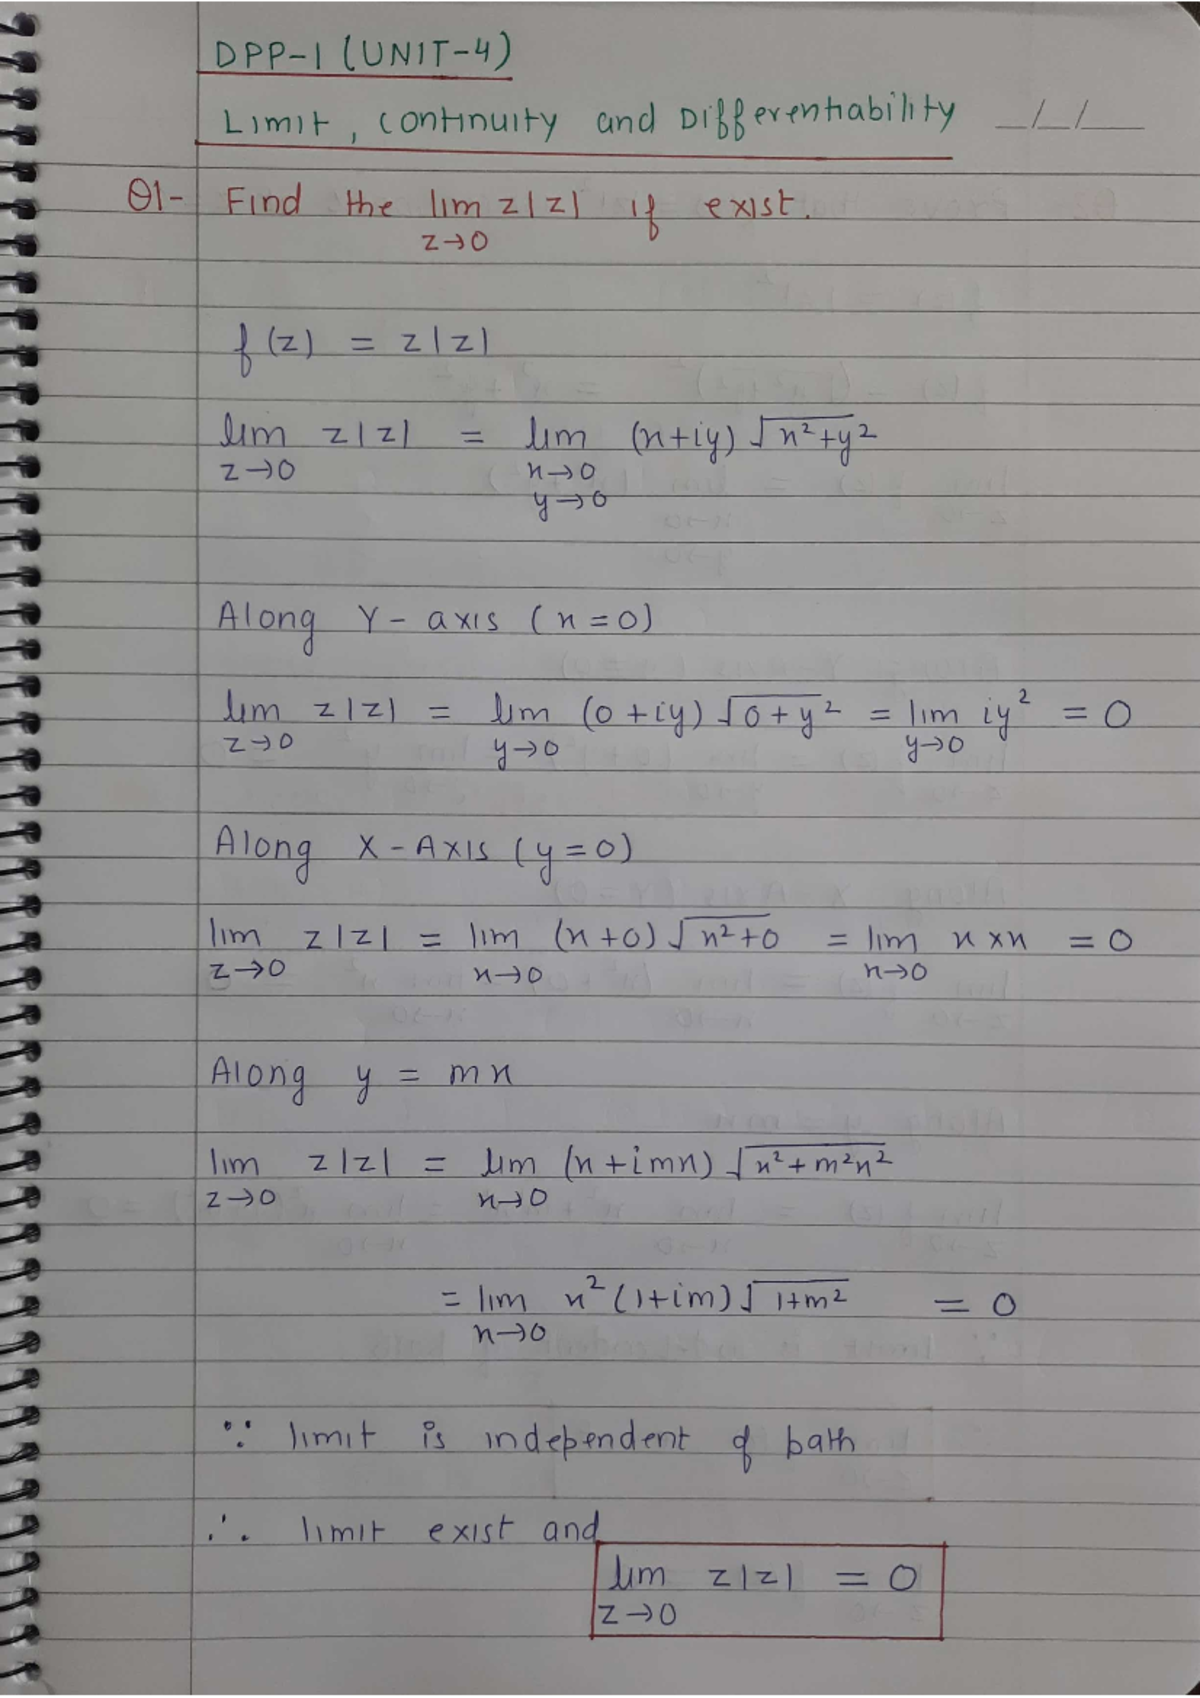 DPP-1 (UNIT-4)
Limit, continuity and Differentiability __/__/____
Q1- Find the lim z|z| if exist.
z→0
f(z) = z|z|
lim z|z| = lim (x+iy) √x²+y²
z→0 x→0
y→0
Along Y-axis (x=0)
lim z|z| = lim (0+iy) √0+y² = lim iy² = 0
z→0 y→0 y→0
Along X-Axis (y=0)
lim z|z| = lim (x+0) √x²+0 = lim x×x = 0
z→0 x→0 x→0
Along y = mx
lim z|z| = lim (x+imx) √x²+m²x²
z→0 x→0
= lim x²(1+im) √1+m² = 0
x→0
∵ limit is independent of path
∴ limit exist and
lim z|z| = 0
z→0